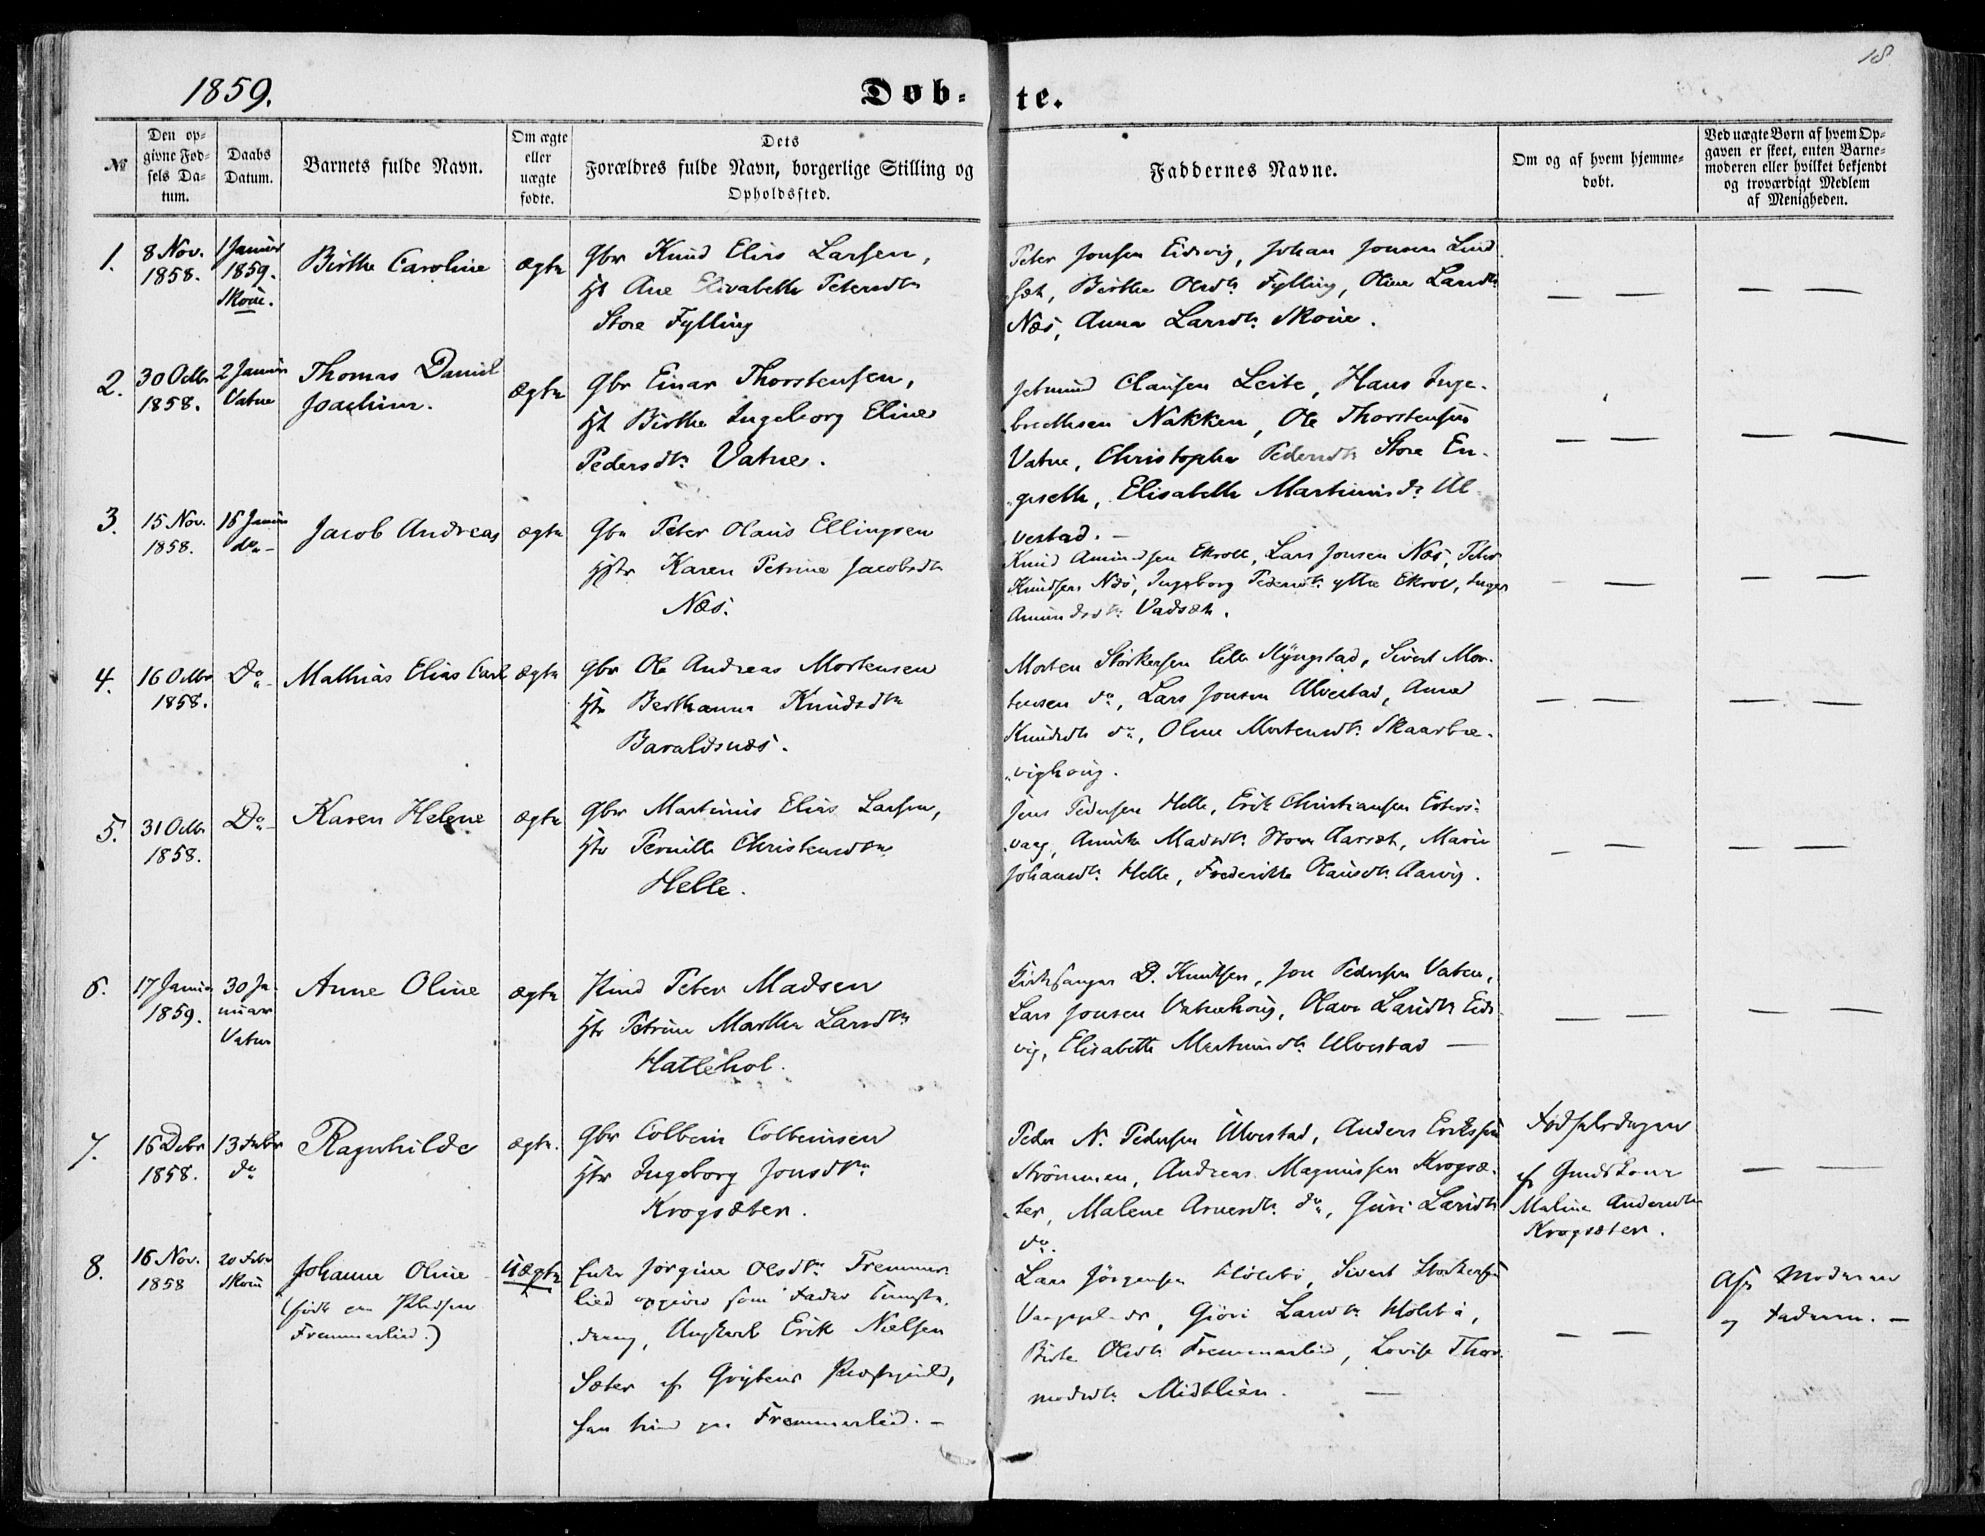 18
1859.
Døb-
te.
№
Den op-
givne Fød-
sels Da-
tum.
Daabs
Datum.
Barnets fulde Navn.
Om ægte
eller
uægte
fødte.
Dets
Forældres fulde Navn, borgerlige Stilling og
Opholdssted.
Faddernes Navne.
Om og af hvem hjemme-
døbt.
Ved uægte Børn af hvem Op-
gaven er skeet, enten Barne-
moderen eller hvilket bekjendt
og troværdigt Medlem
af Menigheden.
1.
8 Nov.
1858.
1 Januar
1859.
Skoue.
Birthe Caroline
ægte
Gbr Knud Elias Larsen,
H. Ane Elisabeth Petersdtr
Store Fylling
Peter Jonsen Eidsvig, Johan Jonsen Lind-
sæt, Birthe Olsdtr. Fylling, Oline Larsdtr
Næs, Anna Larsdtr. Skoue.
— —
— —
2.
30 Octbr
1858.
2 Januar
Vatne
Thomas Daniel
Joachim.
ægte
Gbr Einar Thorstensen,
H. Birthe Ingeborg Eline
Pedersdtr. Vatne.
Jetmund Clausen Leite, Hans Inge-
brethsen Nakken, Ole Thorstensen
Vatne, Christopha Pedersdtr Store En-
geseth, Elisabeth Martinusdr. Ul-
vestad. —
— —
— —
3.
15 Nov.
1858.
16 Januar
do —
Jacob Andreas
ægte
Gbr Peter Olaus Ellingsen
Hstr Karen Petrine Jacobsdtr
Næs.
Knud Amundsen Ekroll, Lars Jonsen Næs, Peter
Knudsen Næs, Ingeborg Pedersdtr. ytre Ekroll, Inger
Amundsdtr. Vadsæt.
— —
— —
4.
16 Octbr
1858.
Do —
Mathias Elias Carl
ægte
Gbr Ole Andreas Mortensen
Hstr Berthanna Knudsdtr
Baraldsnæs.
Morten Storkersen lille Kjøngstad, Sivert Mor-
tensen do, Lars Jonsen Ulvestad, Anne
Knudsdtr do, Oline Mortensdtr. Skaarbre-
vighoug.
— —
— —
5.
31 Octbr
1858.
Do —
Karen Helene
ægte
Gbr Martinus Elias Larsen,
Hstr Pernille Christensdtr
Helle.
Jens Pedersen Helle, Erik Christiansen
vaag, Madsdtr. Store Aarsæt, Marie
Johansdtr. Helle, Frederikke Olausdtr. Aarvig.
— —
— —
6.
17 Januar
1859.
30 Ja-
nuar
Vatne
Anne Oline
ægte
Peter Madsen
Hstr Petrine Martha Larsdtr
Hatlehol.
Kirkesanger D. Knudsen, Jon Pedersen Vatne,
Lars Jonsen Vatnehoug, Olave Larsdtr Eids-
vig, Elisabeth Martinusdtr. Ulvestad —
— —
— —
7.
16 Decbr
1858.
13 Febr
do
Ragnhilde
ægte.
Gbr Colbein Colbeinsen
Hstr Ingeborg Jonsdtr
Krogsæter.
Peder N. Pedersen Ulvestad, Anders Eriksen
Strømmen, Andreas Magnussen Krogsæ-
ter, Malene Arnesdtr. do, Guri Larsdtr
do.
Fødselsdagen
af Gmdskone
Maline Andersdtr
Krogsæter.
— —
8.
16 Nov.
1858
20 Febr
Skoue
Johanne Oline
(født paa Pladsen
Fremmerlied.)
Uægte
Enke Jørgine Olsdtr. Fremmer-
lied opgives som Fader Tjeneste-
dreng, Ungkarl Erik Nielsen
Sæter af Grytens Præstegjeld,
han hun paa Fremmerlied. —
Lars Jørgensen Holebø, Sivert Storkersen
Gjøri Larsdtr Holebø,
Birte Olsdtr Fremmerlied, Lovise Thor-
modsdtr. Midtlien. —
— —
Af Moderen
og Faderen. —